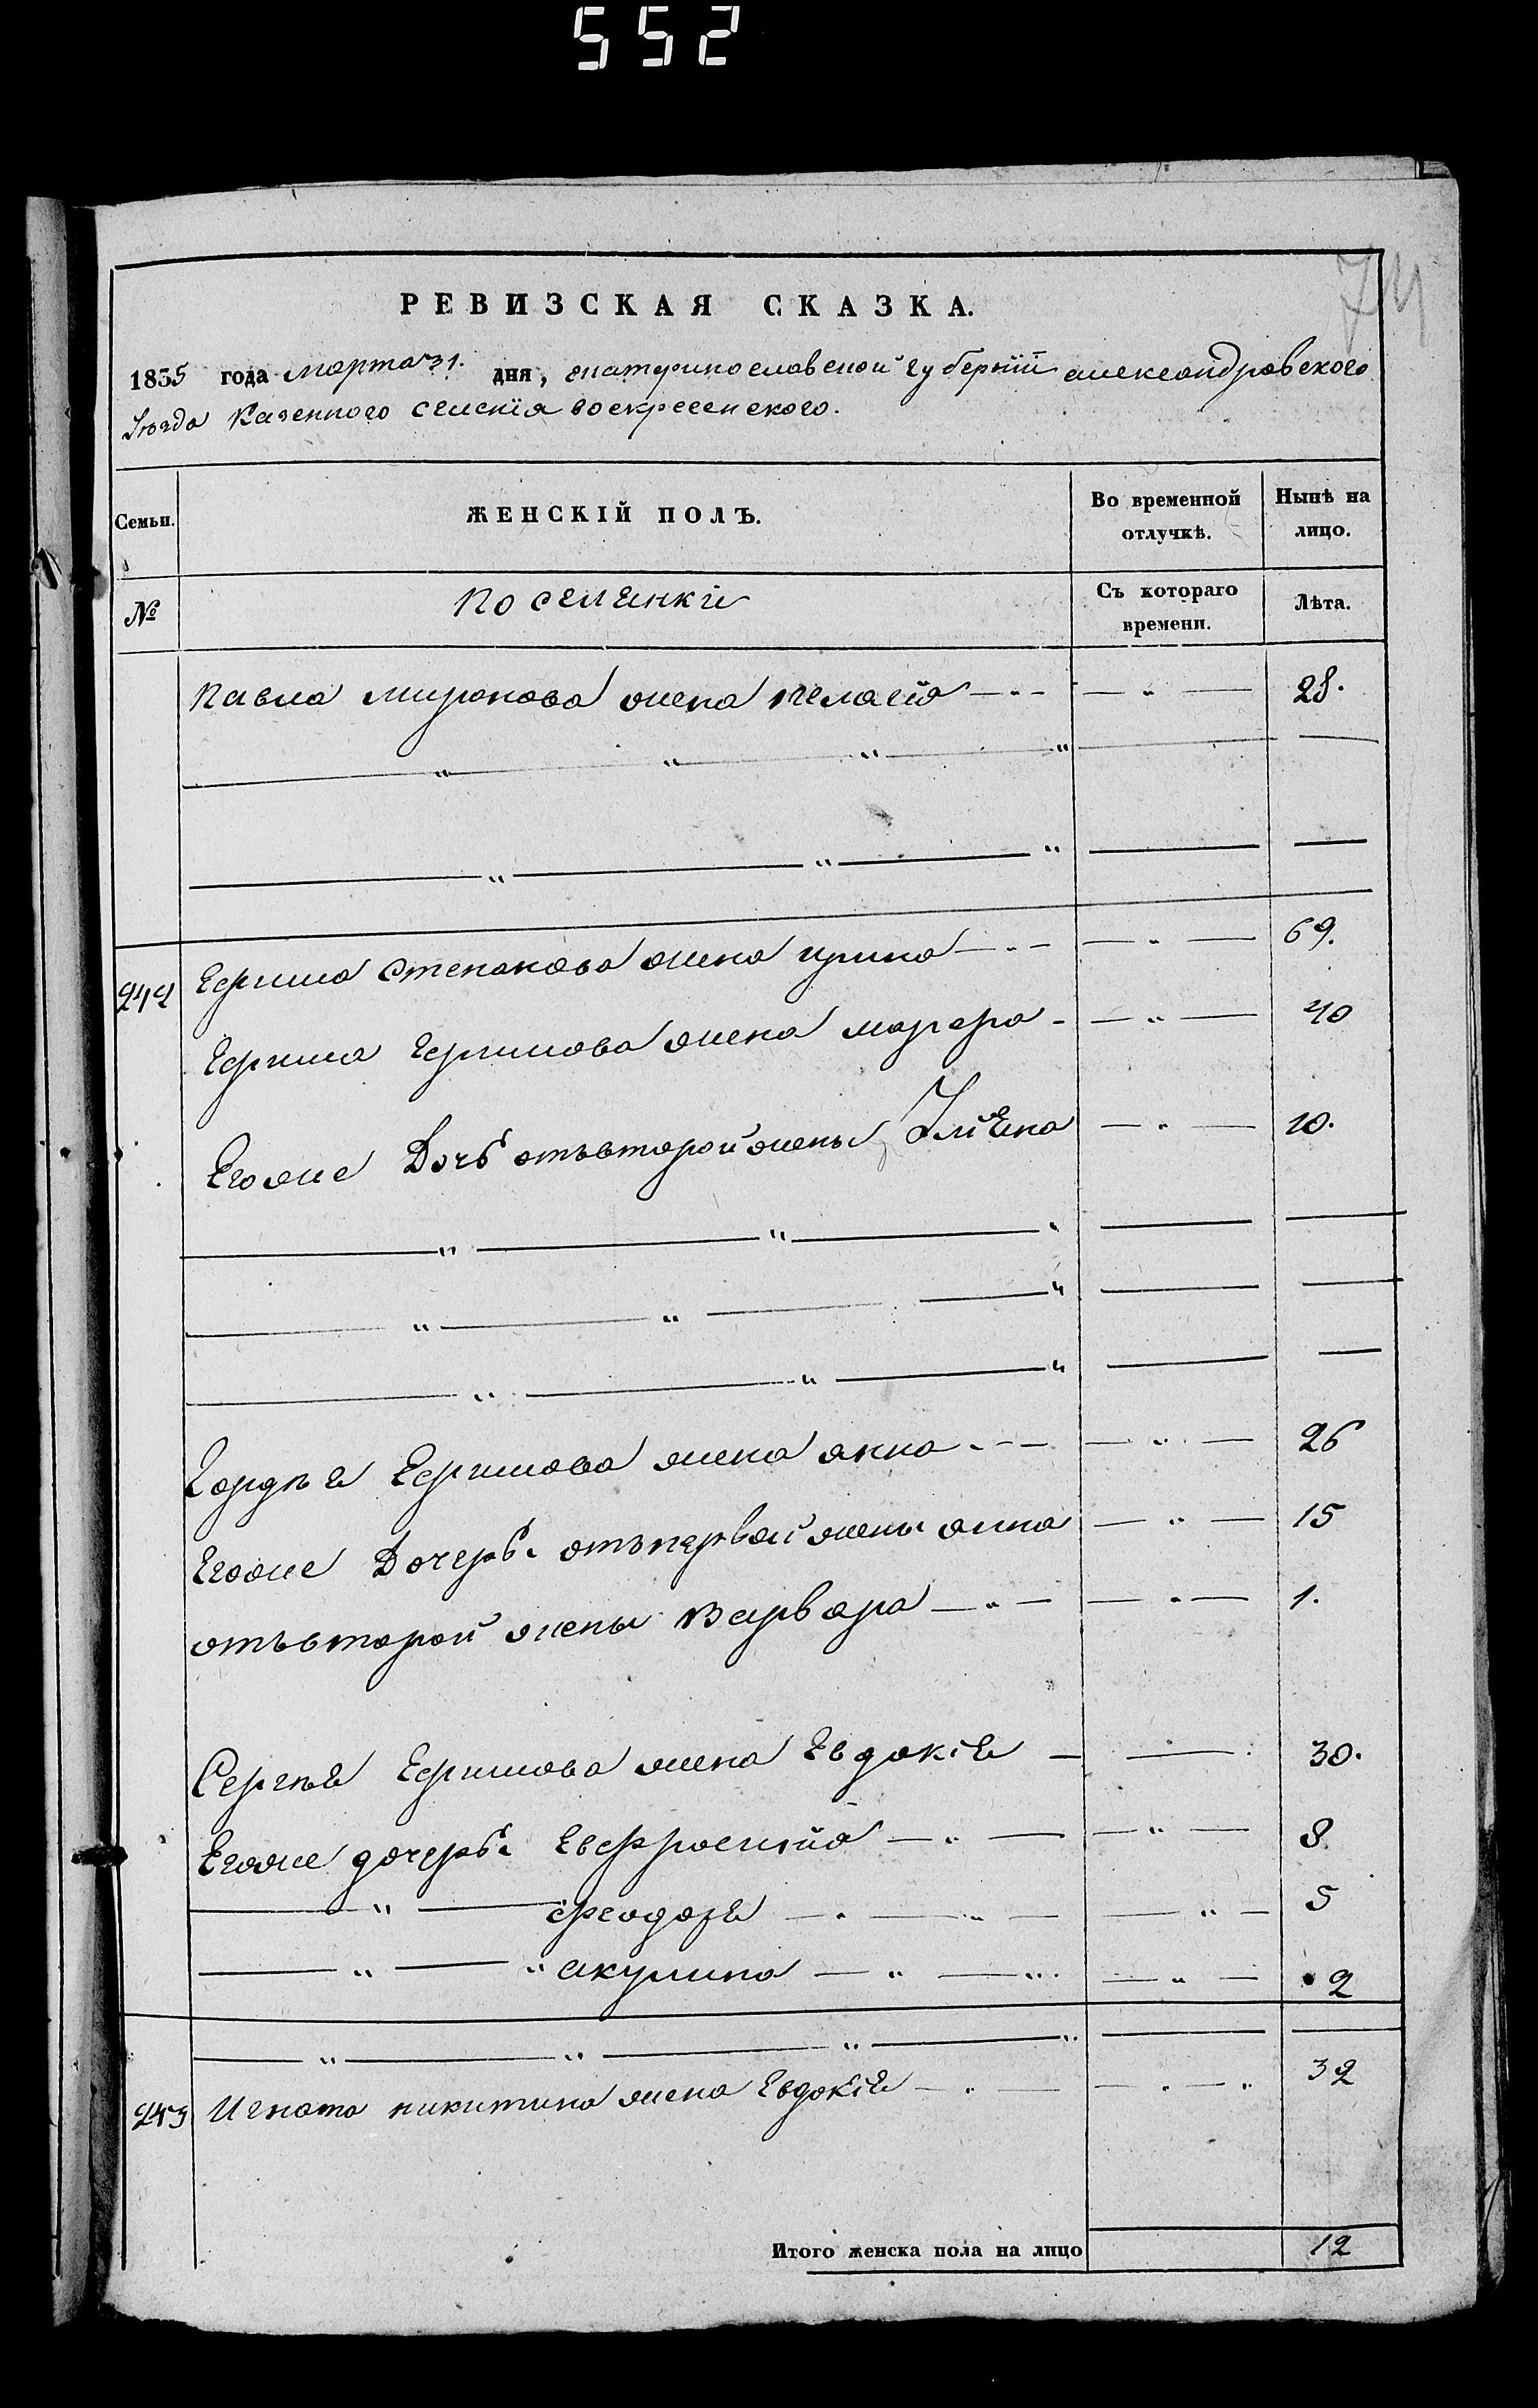 552
74
РЕВИЗСКАЯ СКАЗКА.
1835 года марта 31. дня, екатеринославской губернїи александровского
Уѣзда Казенного селенїя воскресенского.
Семьи. ЖЕНСКІЙ ПОЛЪ. Во временной отлучкѣ. Нынѣ на лицо.
№ поселенкї Съ котораго времени. Лѣта.
Павла миронова жена пелагея 28.
Ефима степанова жена ирина 69.
242
Ефима Ефимова жена марфа 40
Егоже Дочь отъвторой жены Улїяна 10.
Гордѣя Ефимова жена анна 26
Егоже Дочерь. отъпервой жены анна 15
отъвторой жены варвара 1.
Сергѣя Ефимова жена Евдокїя 30.
Егоже дочерь. Евфросинїя 8.
феодора 5
акулина 2
243 Игната никитина жена Евдокїя 32
Итого женска пола на лицо 12